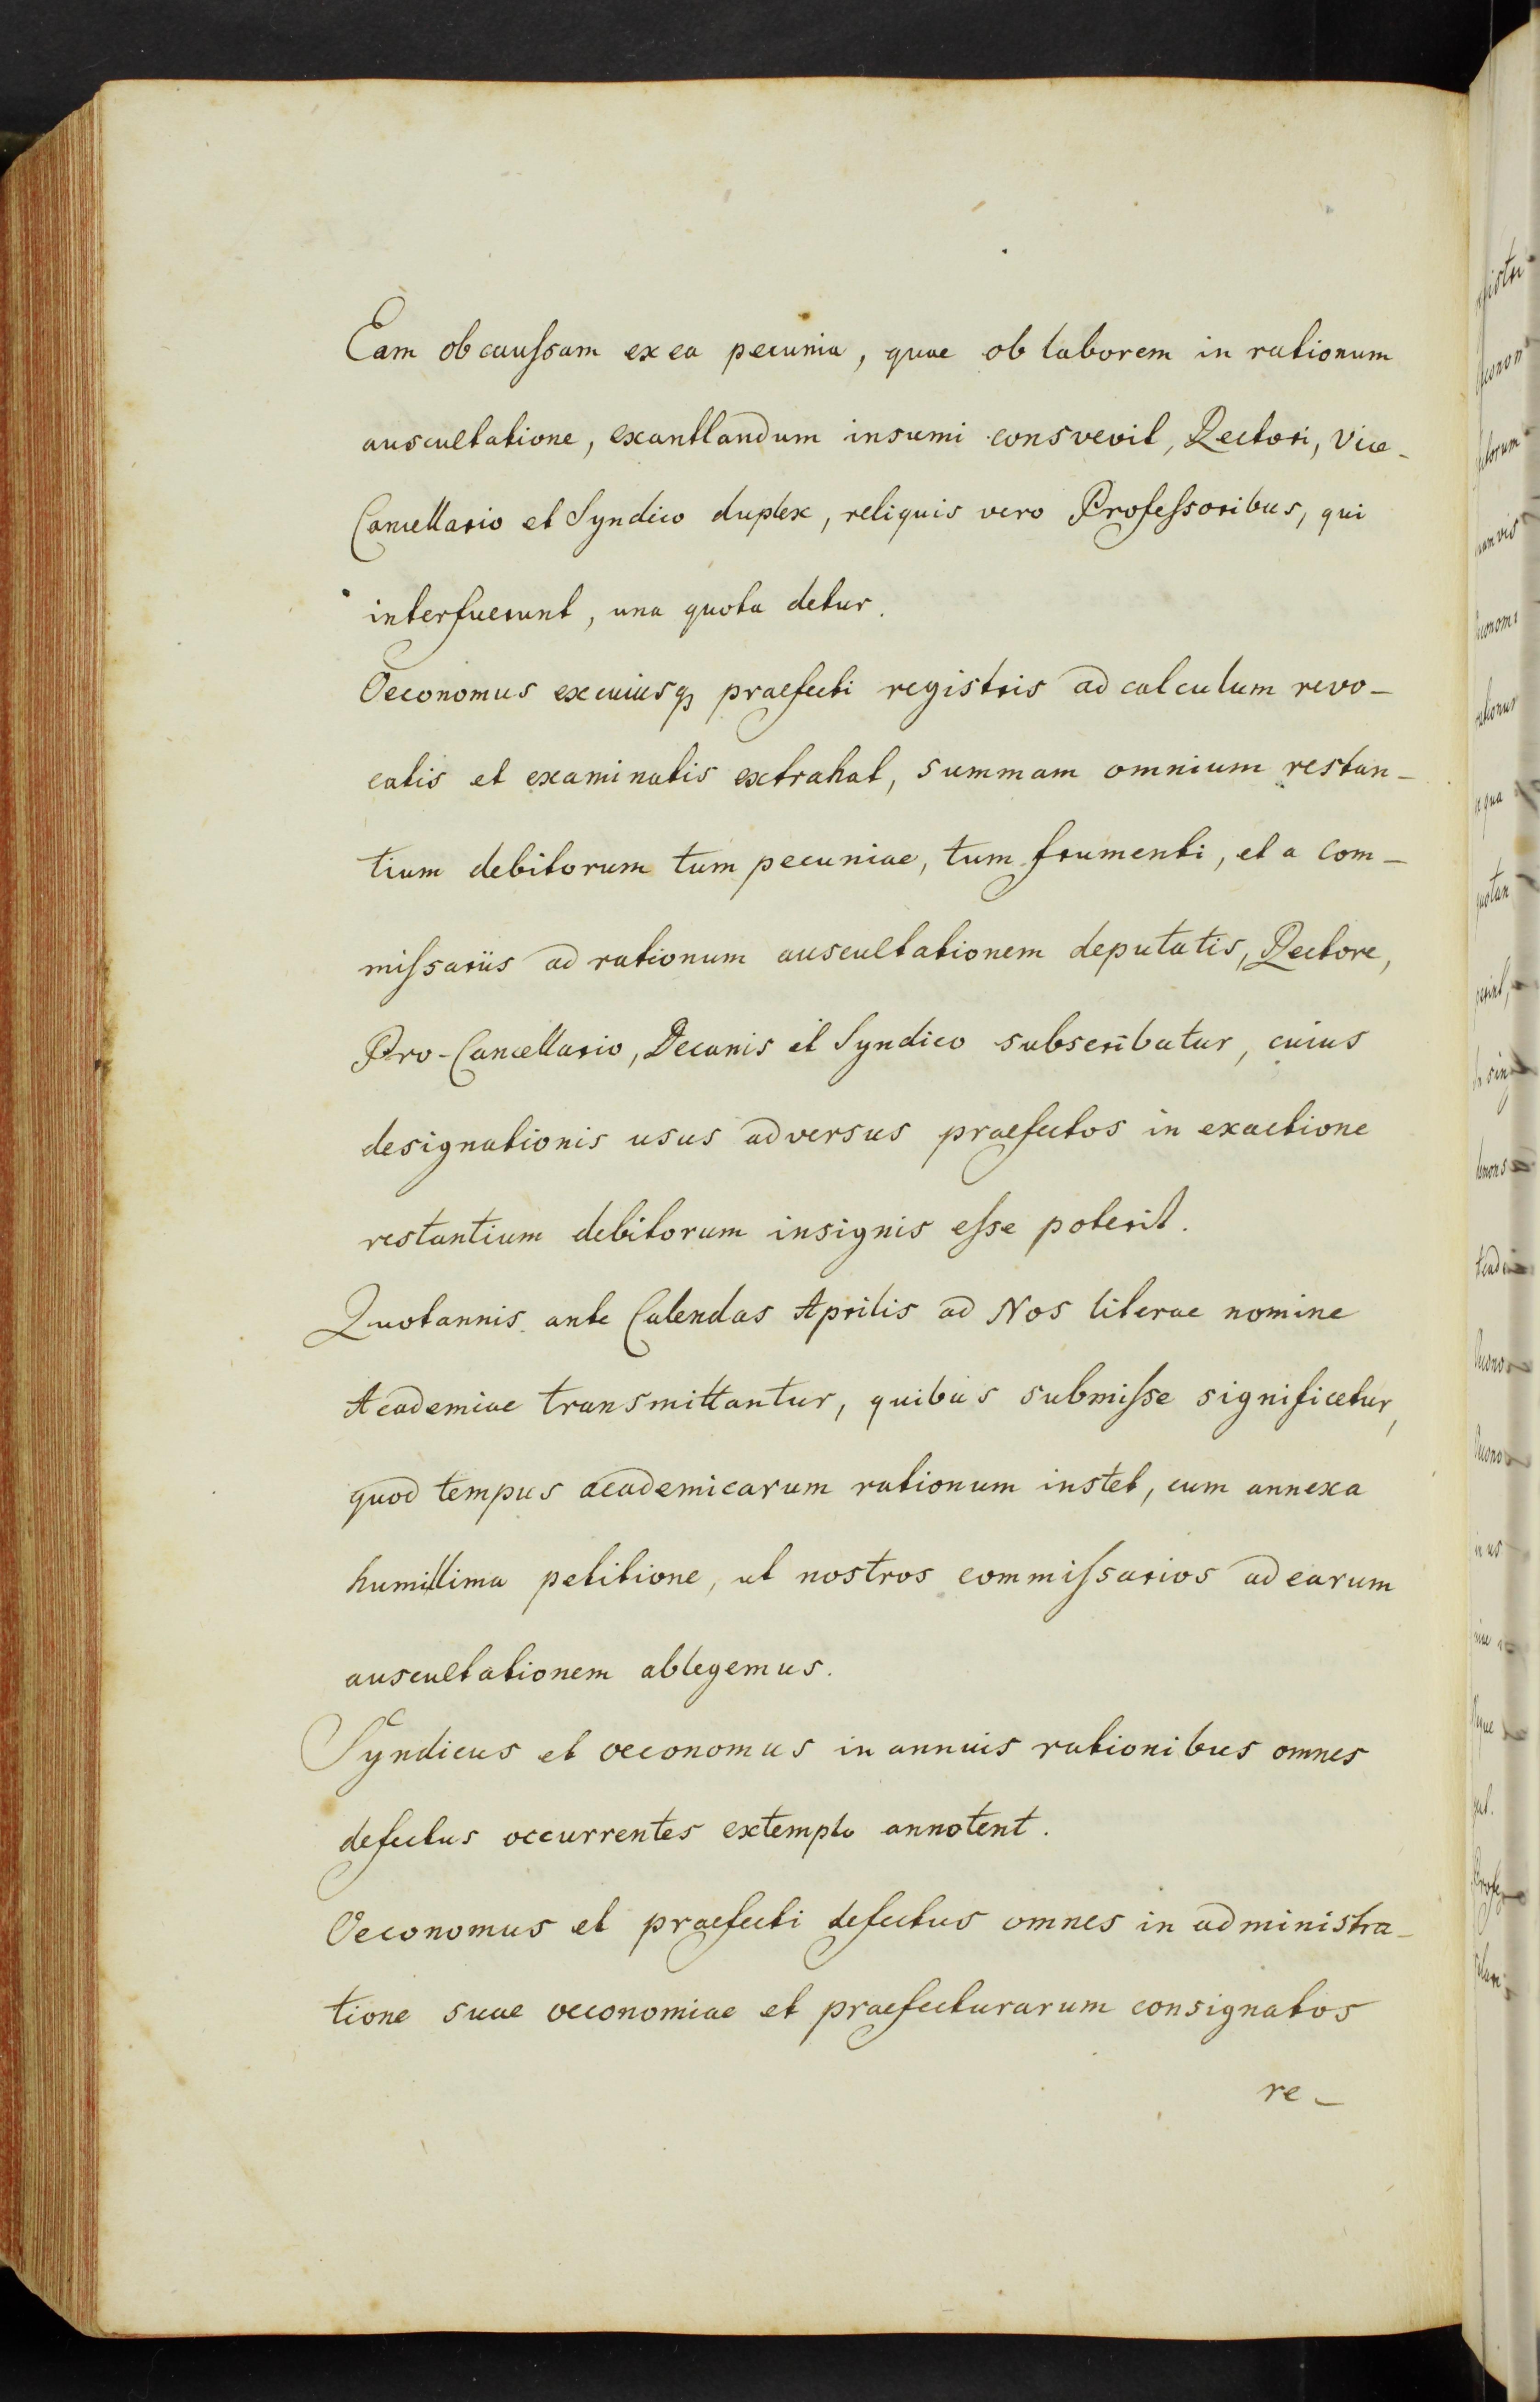 Eam ob caussam ex ea pecunia, quae ob laborem in rationum
auscultatione, exantlandum insumi consvevit, Rectori, Vice-
Cancellario et Syndico duplex, reliquis vero Professoribus, qui
interfuerunt, una quota detur.
Oeconomus ex cuiusq praefecti registris ad calculum revo-
catis et examinatis extrahat, summam omnium restan-
tium debitorum tum pecuniae, tum frumenti, et a Com-
missariis ad rationum auscultationem deputatis, Rectore,
Pro-Cancellario, Decanis et Syndico subscribatur, cuius
designationis usus adversus praefectos in exactione
restantium debitorum insignis esse poterit.
Quotannis ante Calendas Aprilis ad Nos literae nomine
Academiae transmittantur, quibus submisse significetur,
quod tempus academicarum rationum instet, cum annexa
humillima petitione, ut nostros commissarios ad earum
auscultationem ablegemus.
Syndicus et oeconomus in annuis rationibus omnes
defectus occurrentes extemplo annotent.
Oeconomus et praefecti defectus omnes in administra-
tione suae oeconomiae et praefecturarum consignatos
re-